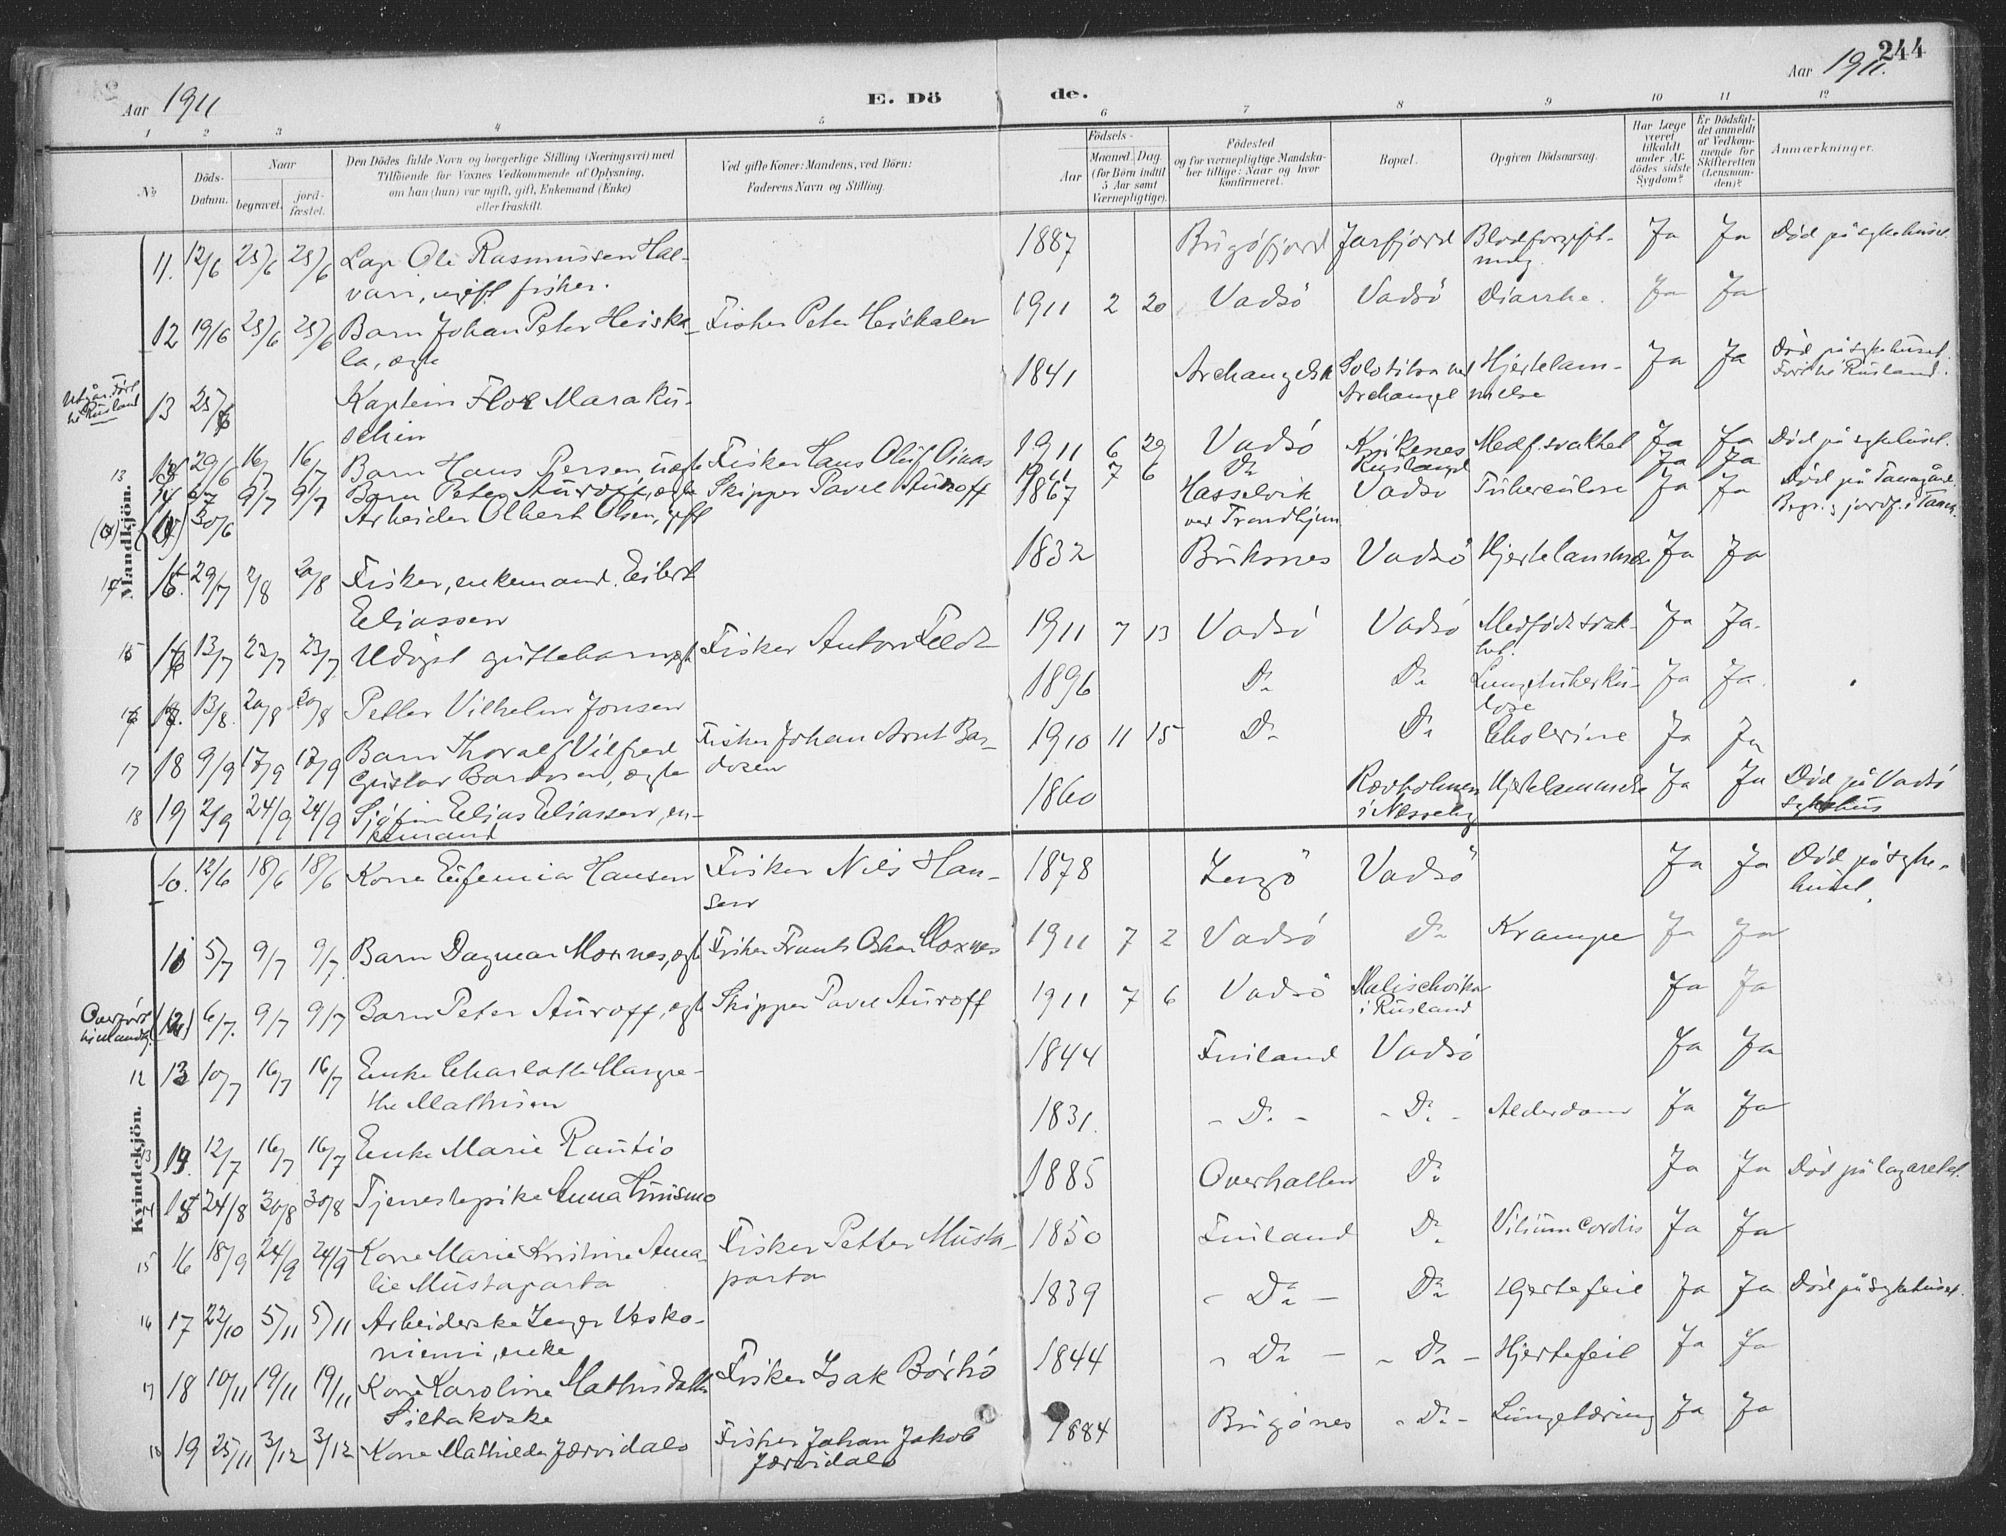 244
Aar 1911
E. Döde.
Aar 1911.
1 2 3 4 5 6 7 8 9 10 11 12
No
Döds-Datum.
Naar
begravet.
jord-fæstet.
Den Dödes fulde Navn og borgerlige Stilling (Næringsvei) med
Tilföiende for Voxnes Vedkommende af Oplysning,
om han (hun) var ugift, gift, Enkemand (Enke)
eller fraskilt.
Ved gifte Koner: Mandens, ved Börn:
Faderens Navn og Stilling.
Födsels-
Aar
Maaned. Dag.
(for Börn indtil
5 Aar samt
Værnepligtige).
Födested
og for værnepligtige Mandska-
ber tillige: Naar og hvor
konfirmeret.
Bopæl.
Opgiven Dödsaarsag.
Har Læge
været
tilkaldt
under Af-
dödes sidste
Sygdom?
Er Dödsfal-
det anmeldt
af Vedkom-
mende for
Skifteretten
(Lensman-
den)?
Anmærkninger.
Mandkjön.
11. 12/6 23/6 23/6 Lap Ole Rasmussen Hal-
vari, ugift fisker. 1887 Bugöfjord Jarfjord Blodforgift-
ning. Ja Ja Död på sykehuset
12 19/6 23/6 23/6 Barn Johan Peter Heiska-
la, ægte Fisker Peter Heiskala 1911 2 20 Vadsö Vadsö Diarrhe. Ja Ja
13 25/6 Kaptein Flor Maraku-
schin 1841 Archangelsk Archangel Hjertelam-
melse Ja Ja Död på sykehuset.
Rusland.
13 29/6 16/7 16/7 Barn Hans Persen uægte Fisker Hans Oluf Oinas 1911 6 29 Vadsö Kirkenes Medf. svakhet Ja Ja Död på sykehuset.
14 6/7 9/7 9/7 Barn Peter Auroff, ægte Skipper Pavel Auroff 1911 7 6 Do Rusland Ja Ja
30/6 Arbeider Olbert Olsen, gift 1867 Hasselvik
ved Trondhjem Vadsö Tuberculose Ja Ja Död på Tanagård.
14 15. 29/7 2/8 20/8 Fisker, enkemand, Eilert
Eliassen 1832 Buksnes Vadsö Hjertelammelse Ja Ja
15 16 13/7 23/7 23/7 Udöpt guttebarn, ægte Fisker Anton Feldt 1911 7 13 Vadsö Vadsö Medfödt svak-
het. Ja Ja.
16 17. 13/8. 20/8 20/8 Petter Vilhelm Jonsen 1896 Do Do Lungetuberku-
lose Ja Ja.
17 18 9/9 17/9 17/9 Barn Thoralf Vilfred
Gustav Bardosen, ægte Fisker Johan Arnt Bar-
dosen 1910 11 15 Do Do Cholerine Ja Ja
18 19 2/9 24/9 24/9 Sjöfin Elias Eliassen, en-
kemand 1860 Rævholmen
i Nesseby Hjertelammelse Ja Ja Död på Vadsö
sykehus
Kvindekjön.
10. 12/6 18/6 18/6 Kone Eufemia Hansen Fisker Nils Han-
sen 1878 Lengö Vadsö Ja Ja Död på syke-
huset.
11 5/7 9/7 9/7 Barn Dagmar Moxnes, ægte Fisker Frants Oskar Moxnes 1911 7 2 Vadsö Do Krampe Ja Ja
(12) 6/7. 9/7 9/7 Barn Peter Auroff, ægte Skipper Pavel Auroff 1911 7 6 Vadsö
i Rusland Ja Ja
12 13 10/7 16/7 16/7 Enke Charlotte Margre-
the Mathisen 1844 Finland Vadsö Ja Ja
13 14. 12/7 16/7 16/7 Enke Marie Rautio 1831. - Do - - Do - Alderdom Ja Ja
14 15 24/8 30/8 30/8 Tjenestepike Anna Hunsmo 1885 Overhallen Do Ja Ja Död på lazarettet.
15 16 18/9 24/9 24/9 Kone Marie Kristine Ama-
lie Mustaparta Fisker Petter Musta-
parta 1850 Finland Do Vitium Cordis Ja Ja
16 17 22/10 5/11 5/11 Arbeiderske Inger Vesko-
niemi, enke 1839 - Do - Do Hjertefeil Ja Ja Död på sykehuset.
17 18 10/11 19/11 19/11 Kone Karoline Mathisdatter
Siltakoske Fisker Isak 1844 - Do - - Do - Hjertefeil Ja Ja
18 19 25/11 3/12 3/12 Kone Mathilde Jærvidalo Fisker Johan Jakob
Jærvidalo 1884 Bugönes - Do - Lungetæring Ja Ja